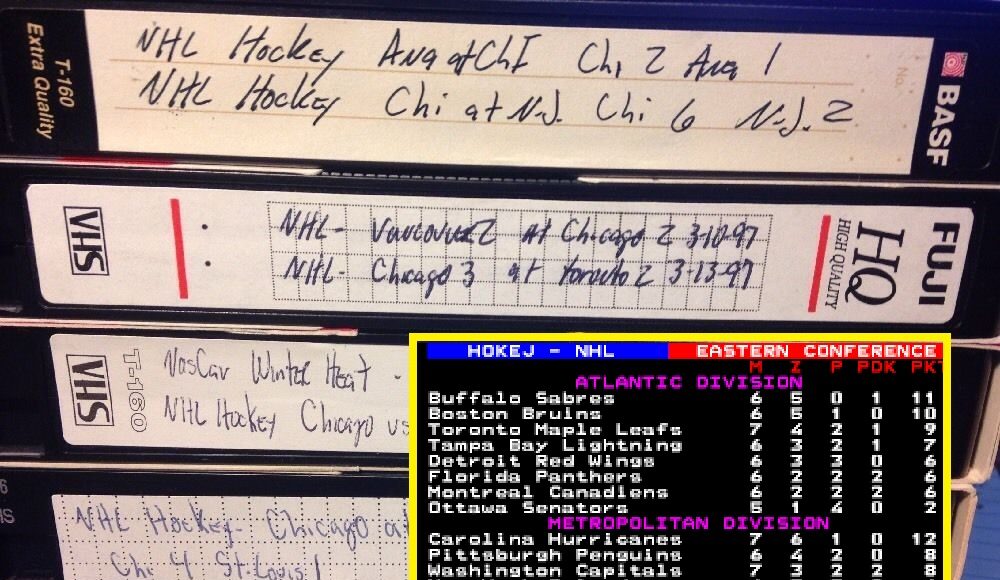 T-160
Extra Quality
NHL Hockey Ana at ChI Chi 2 Ana 1
NHL Hockey Chi at N.J. Chi 6 N.J. 2
No.
BASF
VHS
NHL- Vancouver 2 at Chicago 2 3-10-97
NHL- Chicago 3 at toronto 2 3-13-97
HQ
HIGH QUALITY
FUJI
VHS
T-160
NasCar Winter Heat -
NHL Hockey Chicago vs
NHL Hockey- Chicago at
Chi 4 St. Louis 1
HOKEJ - NHL EASTERN CONFERENCE
M Z P PDK PKT
ATLANTIC DIVISION
Buffalo Sabres 6 5 0 1 11
Boston Bruins 6 5 1 0 10
Toronto Maple Leafs 7 4 2 1 9
Tampa Bay Lightning 6 3 2 1 7
Detroit Red Wings 6 3 3 0 6
Florida Panthers 6 2 2 2 6
Montreal Canadiens 6 2 2 2 6
Ottawa Senators 5 1 4 0 2
METROPOLITAN DIVISION
Carolina Hurricanes 7 6 1 0 12
Pittsburgh Penguins 6 4 2 0 8
Washington Capitals 7 3 2 2 8